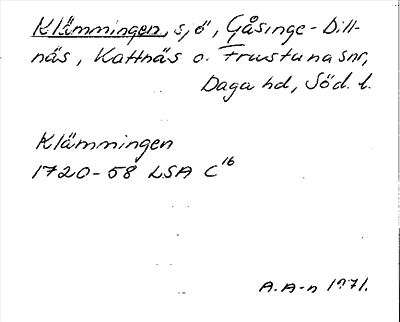 Klämmingen, sjö, Gåsinge-Dill-
näs, Kattnäs o. Frustuna snr,
Daga hd, Söd. l.
Klämmingen
1720-58 LSA C16
A. A-n 1971.